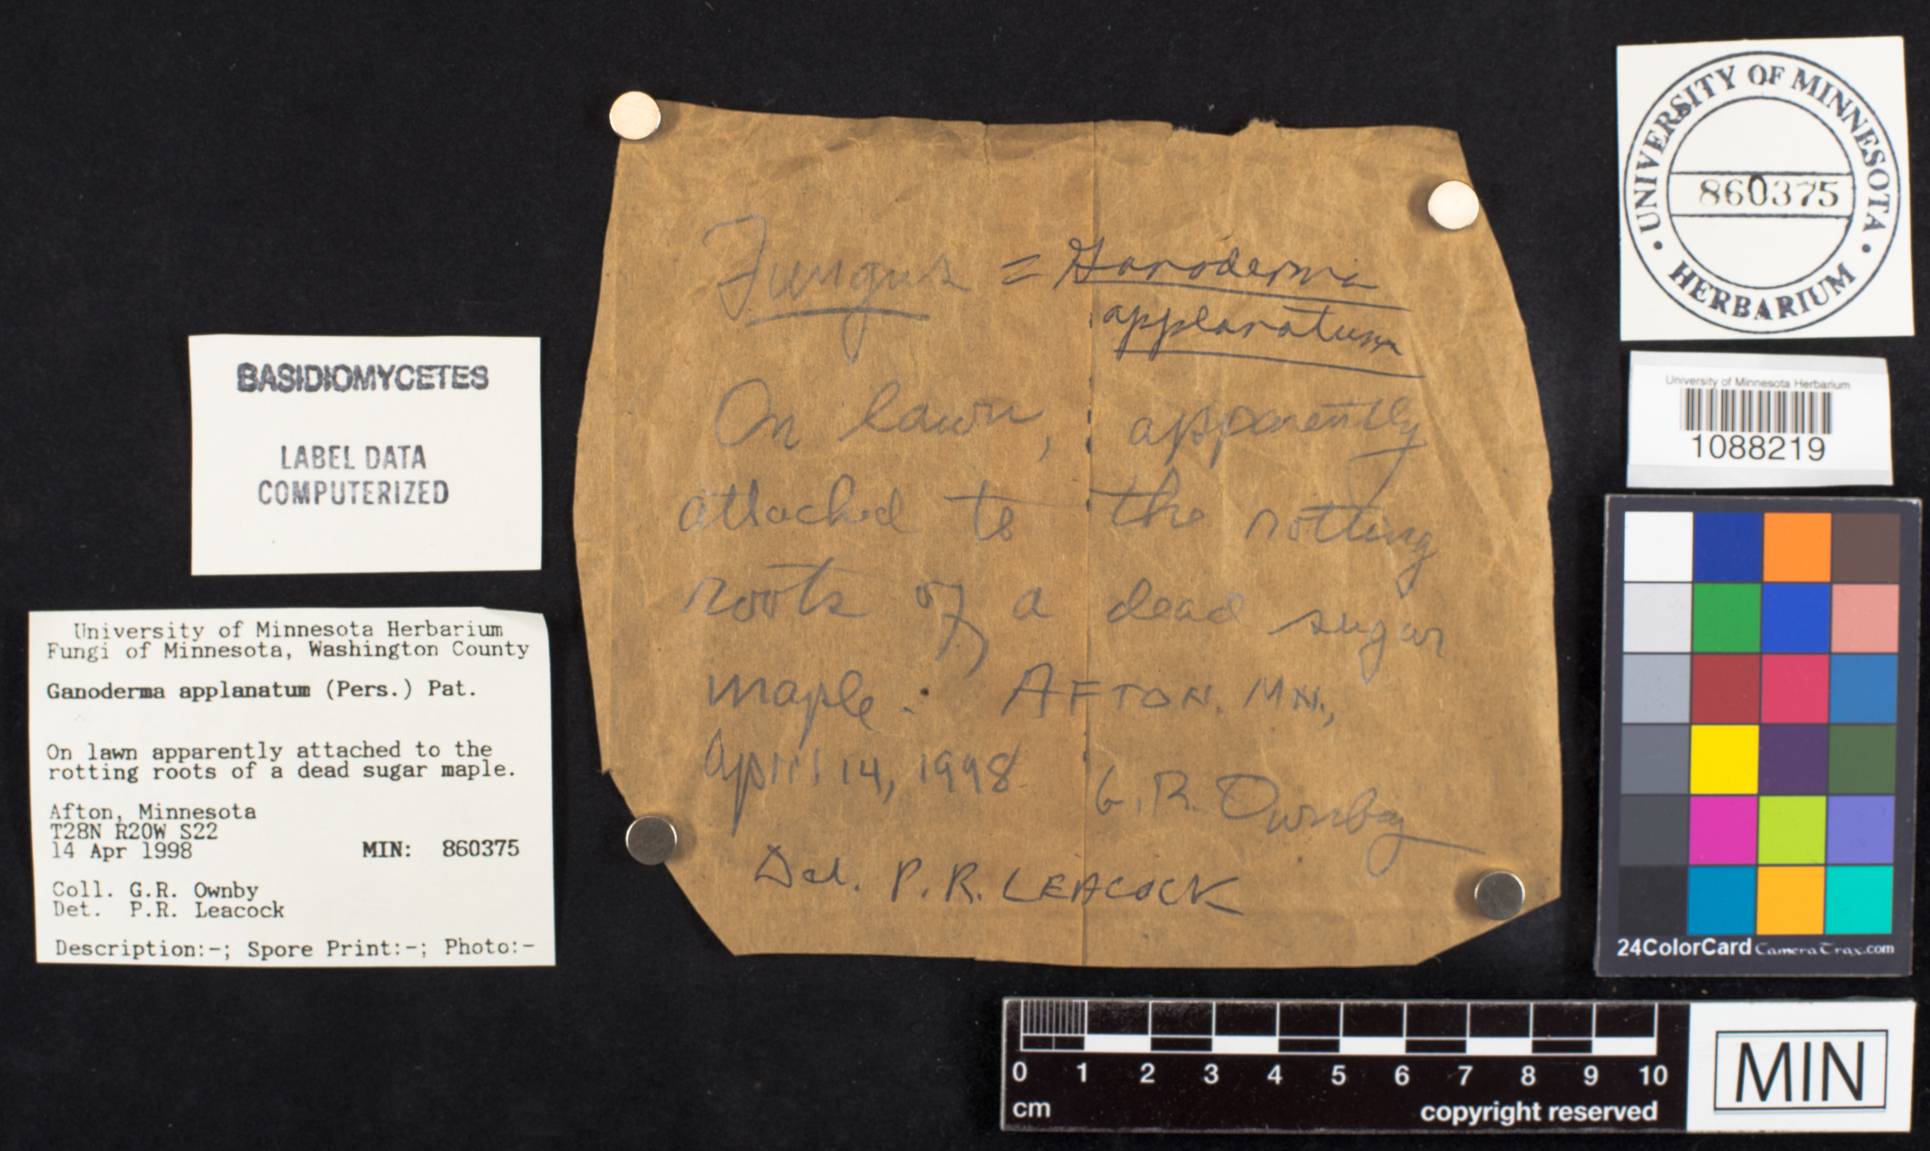 BASIDIOMYCETES
LABEL DATA
COMPUTERIZED
University of Minnesota Herbarium
Fungi of Minnesota, Washington County
Ganoderma applanatum (Pers.) Pat.
On lawn apparently attached to the
rotting roots of a dead sugar maple.
Afton, Minnesota
T28N R20W S22
14 Apr 1998 MIN: 860375
Coll. G.R. Ownby
Det. P.R. Leacock
Description:-; Spore Print:-; Photo:-
Fungus = Ganoderma
applanatum
On lawn, apparently
attached to the rotting
roots of a dead sugar
maple. AFTON, MN.,
April 14, 1998 G.R. Ownby
Det. P.R. LEACOCK
UNIVERSITY OF MINNESOTA
860375
• HERBARIUM •
University of Minnesota Herbarium
1088219
24ColorCard CameraTrax.com
0 1 2 3 4 5 6 7 8 9 10
cm
copyright reserved
MIN